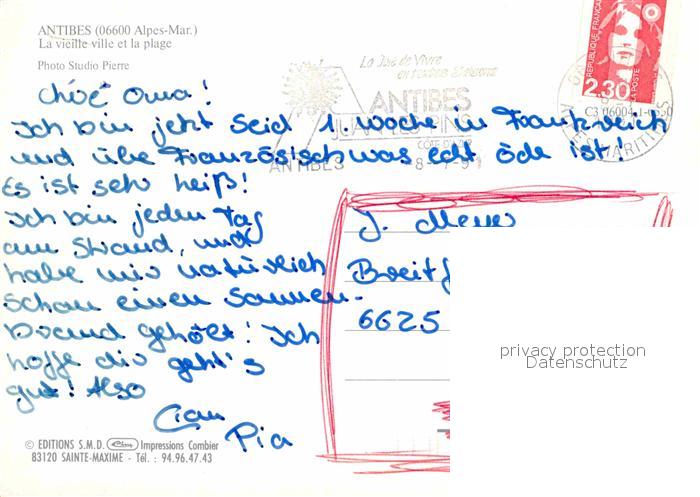 ANTIBES (06600 Alpes-Mar.)
La vieille ville et la plage
Photo Studio Pierre
La Joie de Vivre
ANTIBES
JUAN-LES-PINS
CÔTE D'AZUR
ANTIBES
REPUBLIQUE FRANÇAISE
2.30
LA POSTE
MARITIMES
Oma!
Ich bin jetzt seid 1. Woche in Frankreich
und übe Französisch was echt öde ist!
Es ist sehr heiß!
Ich bin jeden Tag
am Strand, und
habe mir natürlich
schon einen Sonnen-
brand geholt! Ich
hoffe dir geht's
gut! Also
Ciau
Pia
J.
Breit
6625
privacy protection
Datenschutz
© EDITIONS S.M.D. Impressions Combier
83120 SAINTE-MAXIME - Tél. : 94.96.47.43